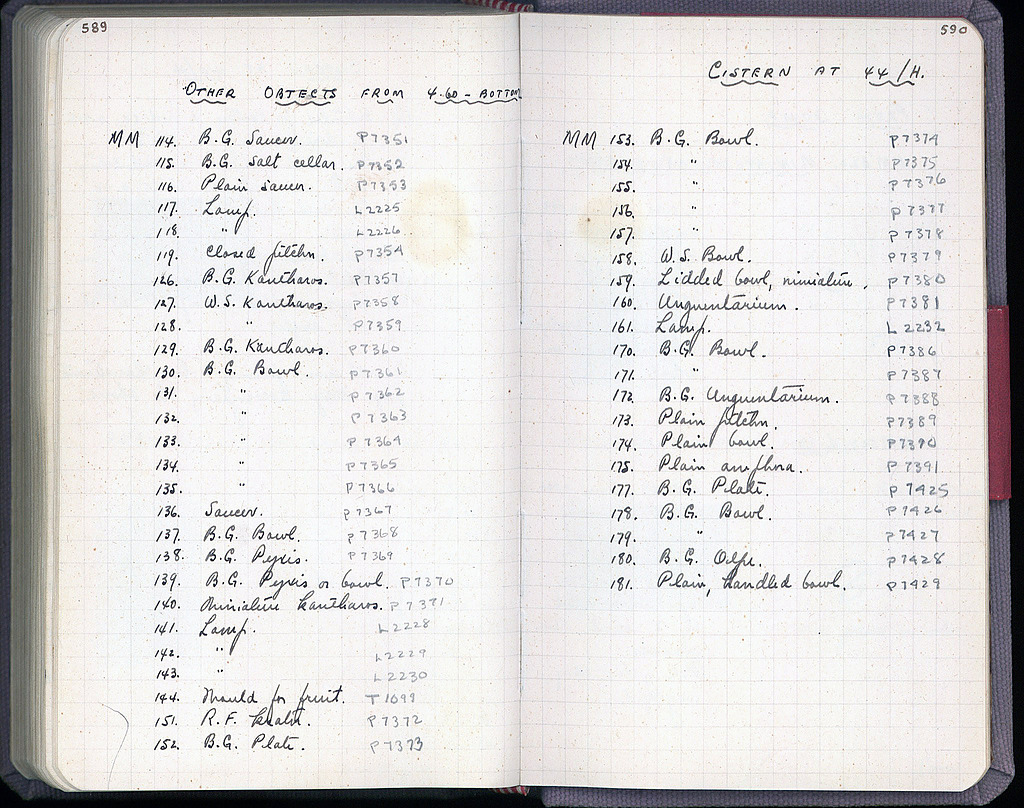 589
OTHER OBJECTS FROM 4.60 - BOTTOM
MM 114. B.G. Saucer. P7351
115. B.G. Salt cellar. P7352
116. Plain saucer. P7353
117. Lamp. L2225
118. " L2226
119. Closed pitcher. P7354
126. B.G. Kantharos. P7357
127. W.S. Kantharos. P7358
128. " P7359
129. B.G. Kantharos. P7360
130. B.G. Bowl. P7361
131. " P7362
132. " P7363
133. " P7364
134. " P7365
135. " P7366
136. Saucer. P7367
137. B.G. Bowl. P7368
138. B.G. Pyxis. P7369
139. B.G. Pyxis or bowl. P7370
140. Miniature kantharos. P7371
141. Lamp. L2228
142. " L2229
143. " L2230
144. Mould for fruit. T1099
151. R.F. krater. P7372
152. B.G. Plate. P7373
590
CISTERN AT 44/H.
MM 153. B.G. Bowl. P7374
154. " P7375
155. " P7376
156. " P7377
157. " P7378
158. W.S. Bowl. P7379
159. Lidded bowl, miniature. P7380
160. Unguentarium. P7381
161. Lamp. L2232
170. B.G. Bowl. P7386
171. " P7387
172. B.G. Unguentarium. P7388
173. Plain pitcher. P7389
174. Plain bowl. P7390
175. Plain amphora. P7391
177. B.G. Plate. P7425
178. B.G. Bowl. P7426
179. " P7427
180. B.G. Olpe. P7428
181. Plain, handled bowl. P7429